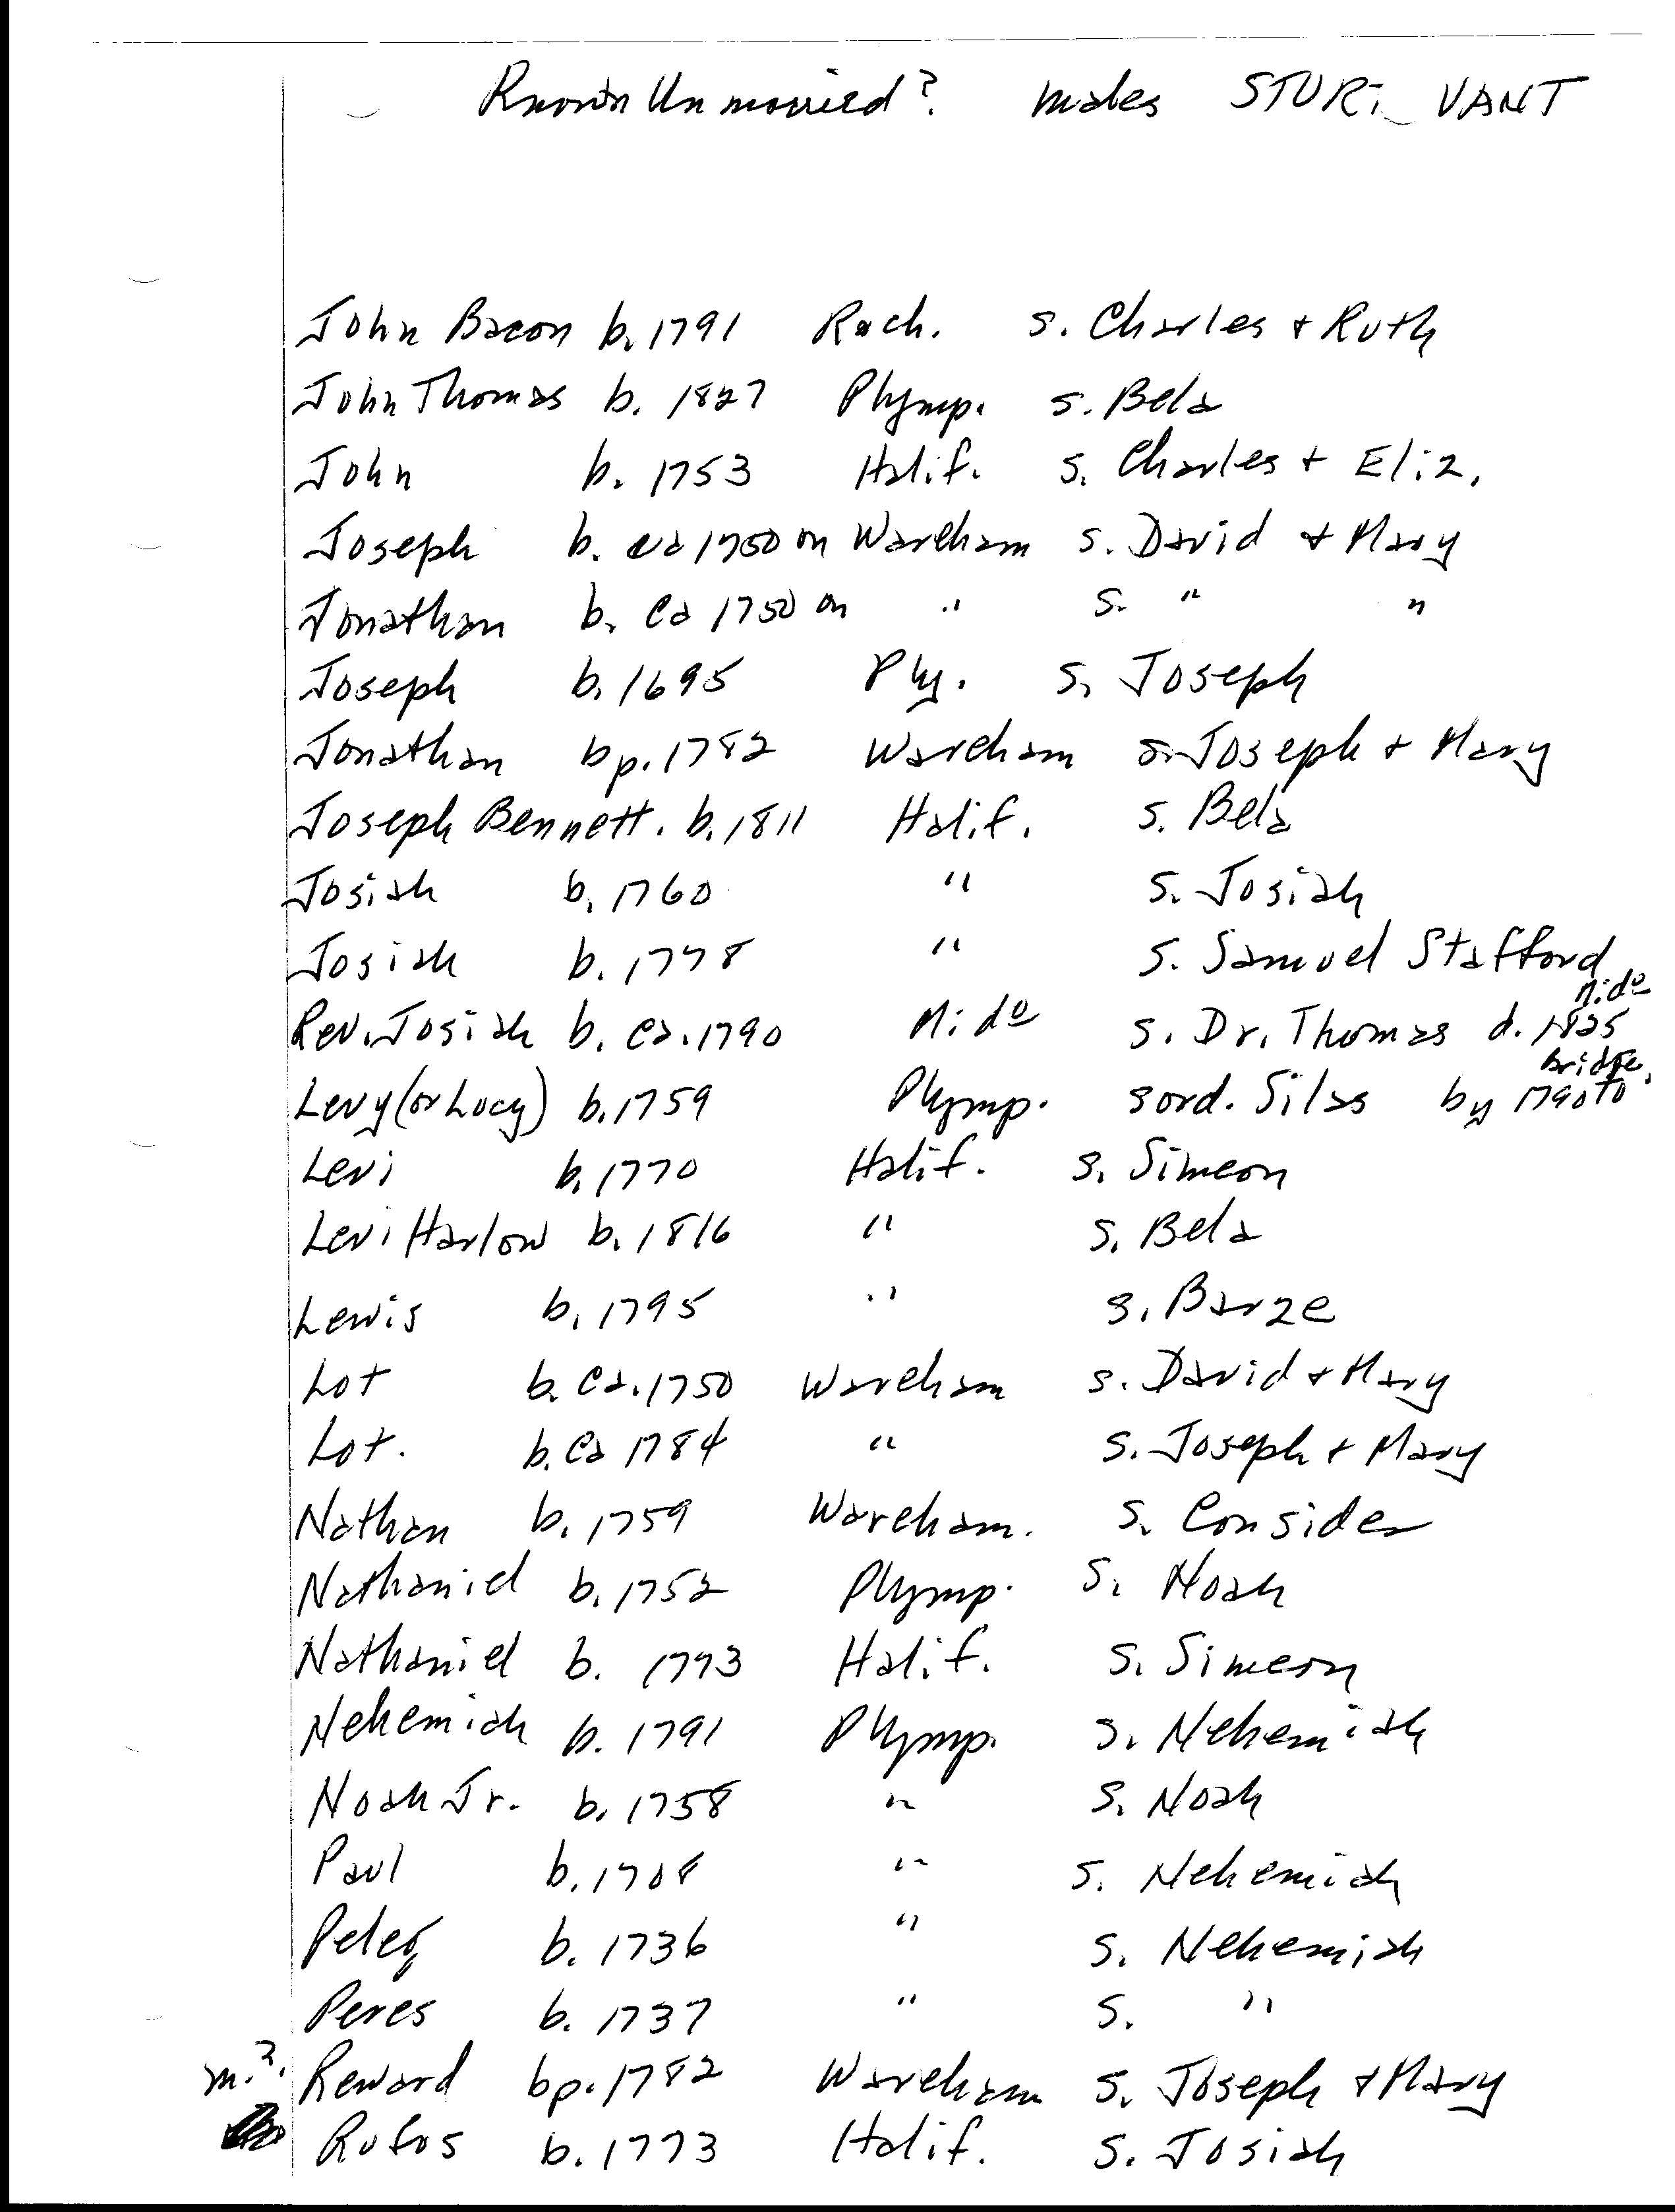 Known Unmarried? males STURTEVANT
John Bacon b. 1791 Roch. s. Charles + Ruth
John Thomas b. 1827 Plymp. s. Bela
John b. 1753 Halif. s. Charles + Eliz.
Joseph b. ca 1750 on Wareham s. David + Mary
Jonathan b. ca 1750 on " s. " "
Joseph b. 1695 Ply. s. Joseph
Jonathan bp. 1782 Wareham s. Joseph + Mary
Joseph Bennett. b. 1811 Halif. s. Bela
Josiah b. 1760 " s. Josiah
Josiah b. 1778 " s. Samuel Stafford
Rev. Josiah b. ca. 1790 Mido s. Dr. Thomas d. 1825 Mido
Levy (or Lucy) b. 1759 Plymp. s or d. Silas by 1790 to Bridge.
Levi b. 1770 Halif. s. Simeon
Levi Harlow b. 1816 " s. Bela
Lewis b. 1795 " s. Barze
Lot b. ca. 1750 Wareham s. David + Mary
Lot. b. ca 1784 " s. Joseph + Mary
Nathan b. 1759 Wareham. s. Consider
Nathaniel b. 1752 Plymp. s. Noah
Nathaniel b. 1773 Halif. s. Simeon
Nehemiah b. 1791 Plymp. s. Nehemiah
Noah Jr. b. 1758 " s. Noah
Paul b. 1708 " s. Nehemiah
Peleg b. 1736 " s. Nehemiah
Peres b. 1737 " s. "
m.? Reward bp. 1782 Wareham s. Joseph + Mary
Rufus b. 1773 Halif. s. Josiah